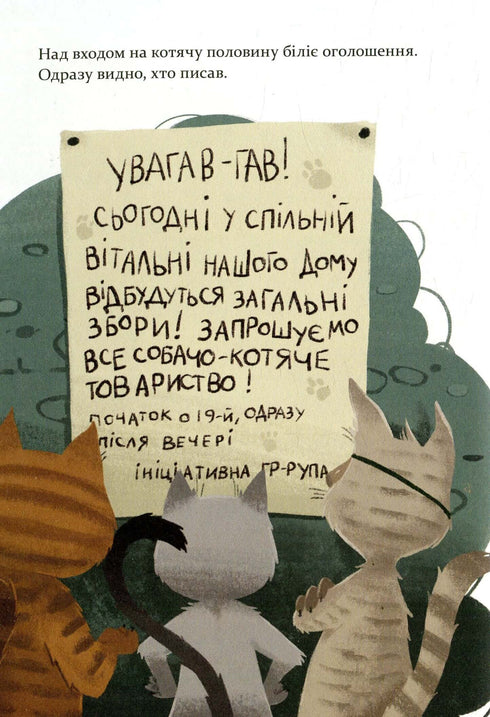 Над входом на котячу половину біліє оголошення.
Одразу видно, хто писав.
УВАГАВ-ГАВ!
СЬОГОДНІ У СПІЛЬНІЙ
ВІТАЛЬНІ НАШОГО ДОМУ
ВІДБУДУТЬСЯ ЗАГАЛЬНІ
ЗБОРИ! ЗАПРОШУЄМО
ВСЕ СОБАЧО-КОТЯЧЕ
ТОВАРИСТВО!
ПОЧАТОК О 19-Й, ОДРАЗУ
ПІСЛЯ ВЕЧЕРІ
ІНІЦІАТИВНА ГР-РУПА